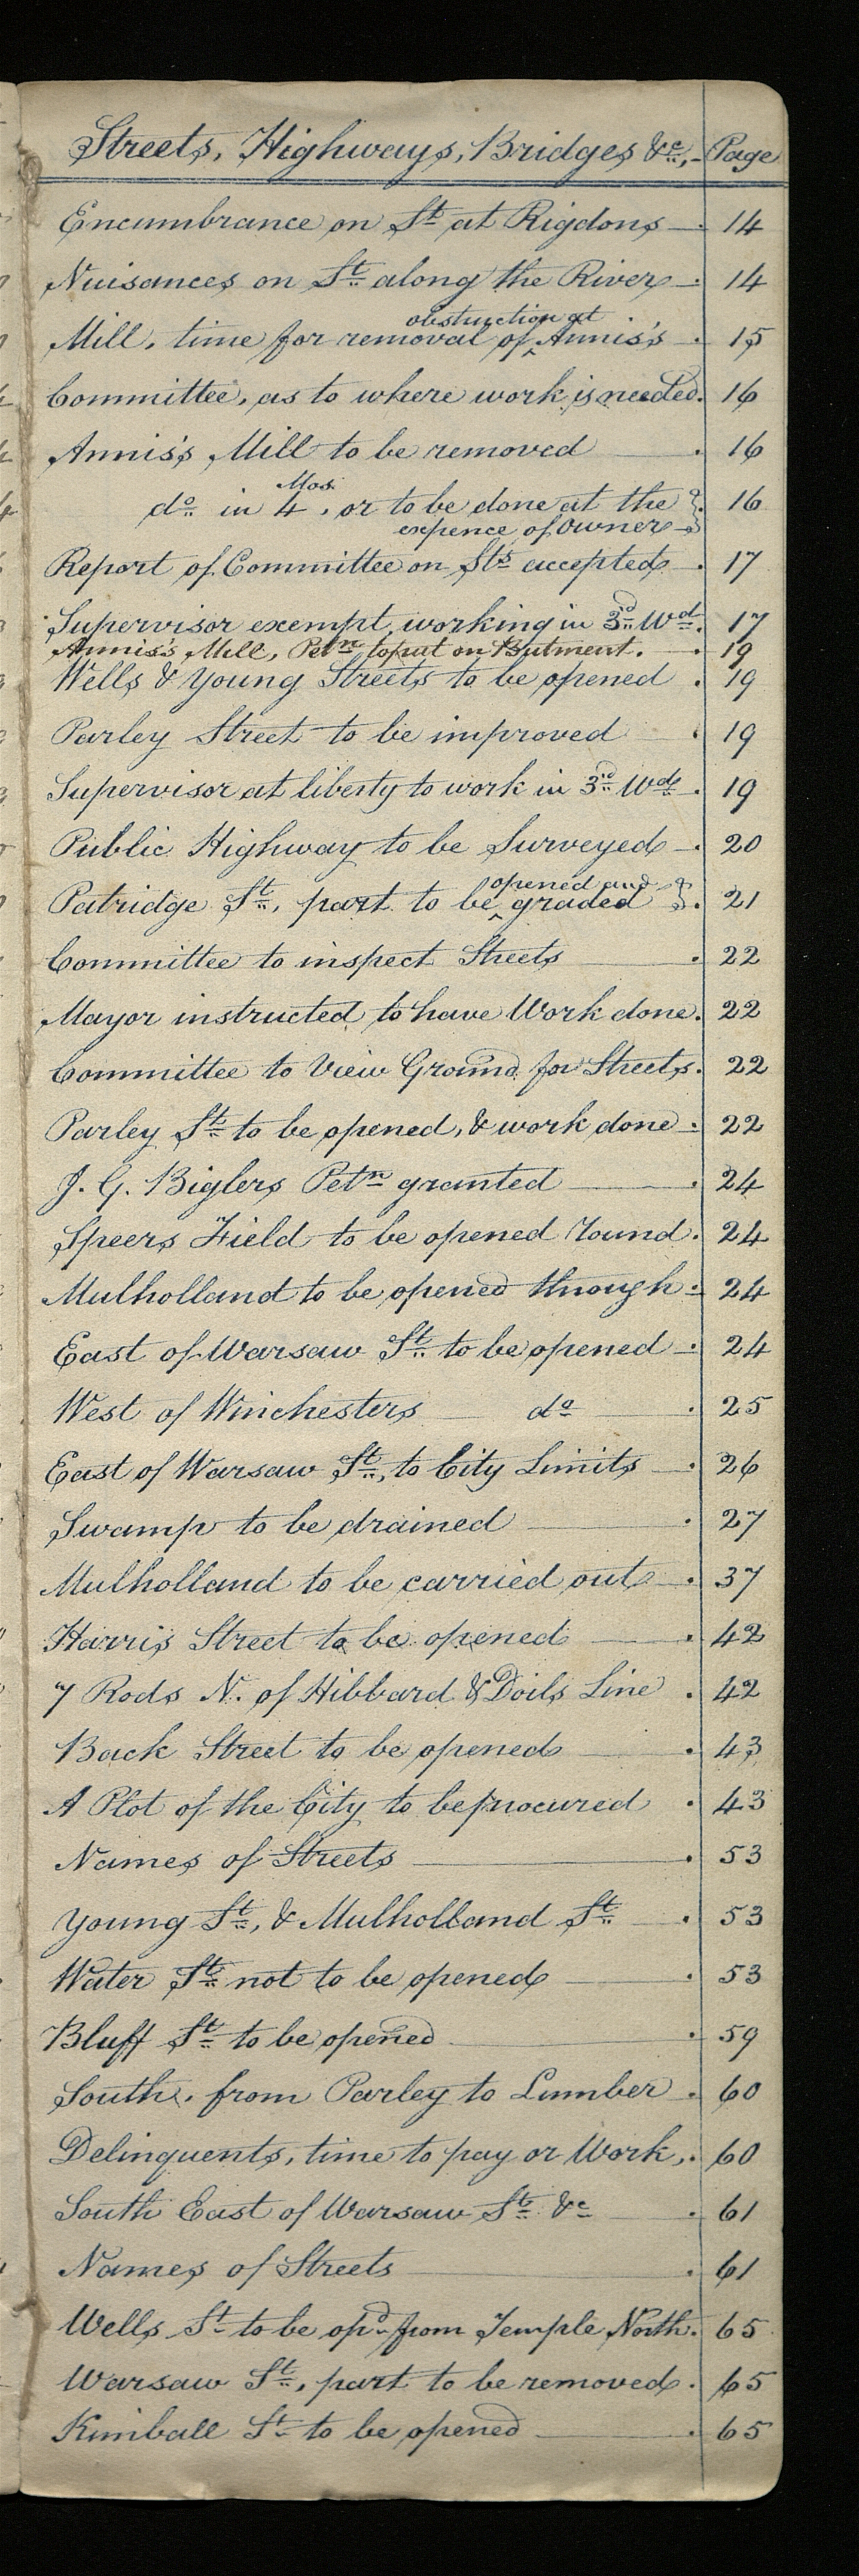 Streets, Highways, Bridges &c., - Page
Encumbrance on St. at Rigdons — . 14
Nuisances on St. along the River — . 14
obstruction at
Mill, time for removal of ‸ Annis's . 15
Committee, as to where work is needed. 16
Annis's Mill to be removed — . 16
Mos.
do. in 4 , or to be done at the } . 16
expence of Owner —
Report of Committee on Sts. accepted — . 17
Supervisor exempt, working in 3rd. Wd. . 17
Annis's Mill, Petn. to put on Butment. — . 19
Wells & Young Streets to be opened . 19
Parley Street to be improved — . 19
Supervisor at liberty to work in 3rd. Wd. . 19
Public Highway to be Surveyed — . 20
opened and
Patridge St., part to be ‸ graded } . 21
Committee to inspect Streets — . 22
Mayor instructed to have Work done . 22
Committee to View Ground for Streets . 22
Parley St. to be opened, & work done — . 22
J. G. Biglers Petn. granted — . 24
Speers Field to be opened round . 24
Mulholland to be opened through — . 24
East of Warsaw St. to be opened — . 24
West of Winchesters — do. — . 25
East of Warsaw St., to City Limits — . 26
Swamp to be drained — . 27
Mulholland to be carried out — . 37
Harris Street to be opened — . 42
7 Rods N. of Hibbard & Doils Line . 42
Back Street to be opened — . 43
A Plot of the City to be procured . 43
Names of Streets — . 53
Young St., & Mulholland St. — . 53
Water St. not to be opened — . 53
Bluff St. to be opened — . 59
South, from Parley to Lumber . 60
Delinquents, time to pay or Work, . 60
South East of Warsaw St. &c — . 61
Names of Streets — . 61
Wells St. to be opd. from Temple North . 65
Warsaw St., part to be removed . 65
Kimball St. to be opened — . 65